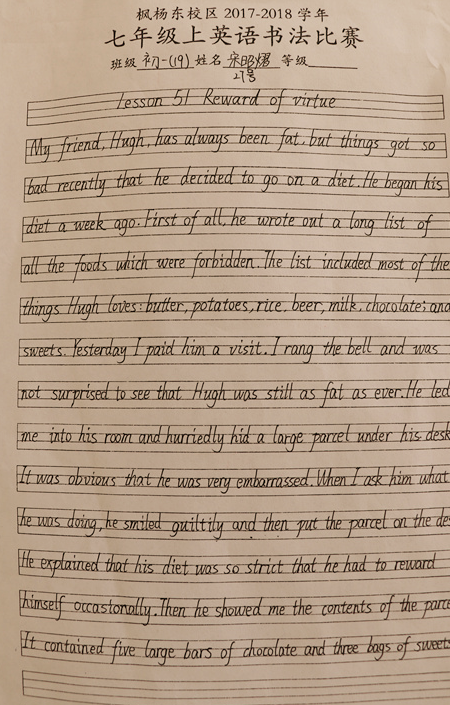 枫杨东校区 2017-2018 学年
七年级上英语书法比赛
班级 初一(19) 姓名 宋昭熠 等级
27号
Lesson 51 Reward of virtue
My friend, Hugh, has always been fat, but things got so
bad recently that he decided to go on a diet. He began his
diet a week ago. First of all, he wrote out a long list of
all the foods which were forbidden. The list included most of the
things Hugh loves: butter, potatoes, rice, beer, milk, chocolate; and
sweets. Yesterday I paid him a visit. I rang the bell and was
not surprised to see that Hugh was still as fat as ever. He led
me into his room and hurriedly hid a large parcel under his desk
It was obvious that he was very embarrassed. When I ask him what
he was doing, he smiled guiltily and then put the parcel on the des
He explained that his diet was so strict that he had to reward
himself occastonally. Then he showed me the contents of the parce
It contained five large bars of chocolate and three bags of sweets